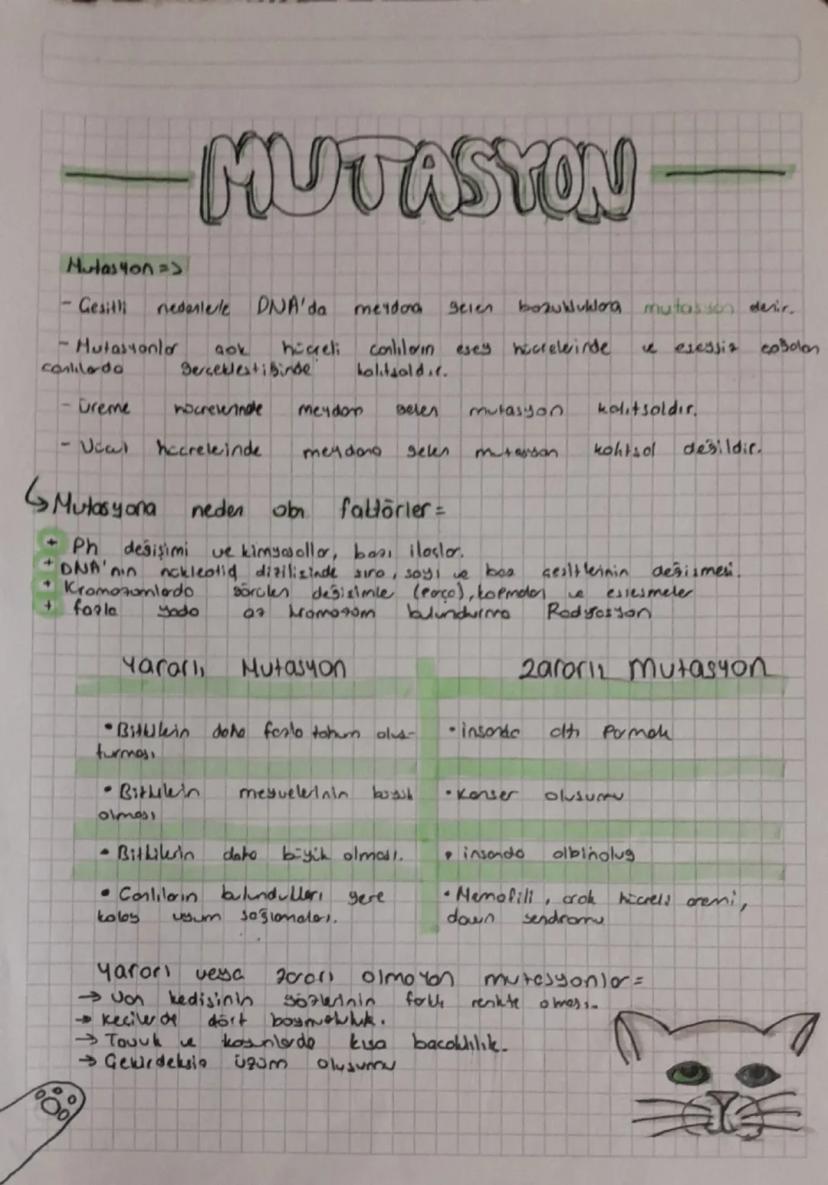 MUTASYON
Mutasyon =>
- Çeşitli nedenlerle DNA'da meydana gelen bozukluklara mutasyon denir.
- Mutasyonlar çok hücreli canlıların eşey hücrelerinde ve eşeysiz çoğalan
canlılarda gerçekleştiğinde kalıtsaldır.
- Üreme hücrelerinde meydana gelen mutasyon kalıtsaldır.
- Vücut hücrelerinde meydana gelen mutasyon kalıtsal değildir.
Mutasyona neden olan faktörler =
+ Ph değişimi ve kimyasallar, bazı ilaçlar.
+ DNA'nın nükleotid dizilişinde sıra, sayı ve baz çeşitlerinin değişmesi.
+ Kromozomlarda görülen değişimler (parça), kopmaları ve eşleşmeler
+ fazla yada az kromozom bulundurma Radyasyon
Yararlı Mutasyon
Zararlı Mutasyon
• Bitkilerin daha fazla tohum oluş-
turması
• insanda altı parmak
• Bitkilerin meyvelerinin büyük
olması
• Kanser oluşumu
• Bitkilerin daha büyük olması.
• insanda albinoluğ
• Canlıların bulundukları yere
kolay uyum sağlamaları.
• Hemofili, orak hücreli anemi,
down sendromu
Yararı veya zararı olmayan mutasyonlar =
→ Van kedisinin gözlerinin farklı renkte olması.
→ Keçilerde dört boynuzluluk.
→ Tavuk ve koyunlarda kısa bacaklılık.
→ Çekirdeksiz üzüm oluşumu